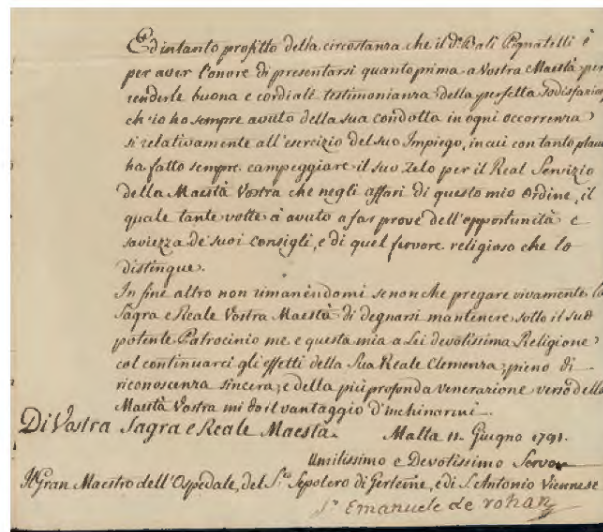 Ed intanto profitto della circostanza che il d.º Balì Pignatelli è
per aver l'onore di presentarsi quanto prima a Vostra Maestà per
renderle buona e cordiali testimonianza della perfetta sodisfazion
ch'io ho sempre avuto della sua condotta in ogni occorrenza
sì relativamente all'esercizio del suo Impiego, in cui con tanto plau
ha fatto sempre campeggiare il suo Zelo per il Real Servizio
della Maestà Vostra che negli affari di questo mio Ordine, il
quale tante volte à avuto a far prove dell'opportunità e
saviezza de' suoi Consigli, e di quel fervore religioso che lo
distingue.
In fine altro non rimanendomi se non che pregare vivamente la
Sagra e Reale Vostra Maestà di degnarsi mantenere sotto il suo
potente Patrocinio me e questa mia a Lei devotissima Religione
col continuarci gli effetti della Sua Reale Clemenza; pieno di
riconoscenza sincera, e della più profonda venerazione verso della
Maestà Vostra mi do il vantaggio d'inchinarmi.
Di Vostra Sagra e Reale Maestà. Malta 11. Giugno 1791.
Umilissimo e Devotissimo Servor
Il Gran Maestro dell'Ospedale, del S.to Sepolcro di Gerleme, e di S. Antonio Viennese
Emanuele de rohan